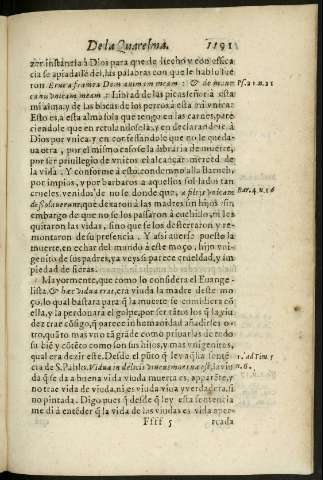 De la Quaresma.
1191
zer instancia à Dios para que de hecho y con eficacia
cia se apiadasse del, las palabras con que le hablo fueron
ron Erue a framea Deus animam meam: & de manu
Ps. 21. n. 21
canis vnicam meam: Librad de las picas señor à esta
mi alma, y de las bocas de los perros à esta mi vnica:
Esto es, a esta alma sola que tengo en las carnes, pare
ciendole que en retulandosela, y en declarandole à
Dios por vnica, y en confessandole que no le quedaua
ua otra, por el mismo caso se la librara de muerte,
por ser priuilegio de vnicos el alcançar merced de
la vida. Y conforme à esto, condenmo alla Baruch,
por impios, y por barbaros a aquellos soldados tan
crueles, venidos de no se donde que, a filijs vnicam
Bar. 4. n. 16
desolauerunt, que dexaron à las madres sin hijos sin
embargo de que no se los passaron à cuchillo, ni les
quitaron las vidas, sino que se los desterraron y remontaron
montaron de su presencia. Y assi auerse puesto la
muerte, en echar del mundo à este moço, hijo vnigenito
genito de sus padres, ya veys si parece crueldad, y impiedad
piedad de fieras.
Mayormente, que como lo considera el Euangelista,
lista, & hæc vidua erat, era viuda la madre deste moço,
ço, lo qual bastara para q̃ la muerte se considerara cõ
ella, y la perdonara el golpe, por ser tãtos los q̃ la viudez
dez trae cõsigo, q̃ parece inhumanidad añadirles otro,
tro, quãto mas vno tã grãde como priuarlos de todo
su biẽ y cõtẽto como son sus hijos, y mas vnigenitos,
qual era dezir este. Desde el pũto q̃ leya q̃lla sentẽcia
1. ad Tim. 5
cia de S. Pablo. Vidua in delicijs viuens mortua est, la viuda
n. 6.
da q̃ se da a buena vida viuda muerta es, apparẽte, y
no trae vida de viuda, ni es viuda viua y verdadera, sino
no pintada. Digo pues q̃ desde q̃ ley esta sentencia
me di a entẽder q̃ la vida de las viudas es vida aper-
Ffff 5
reada